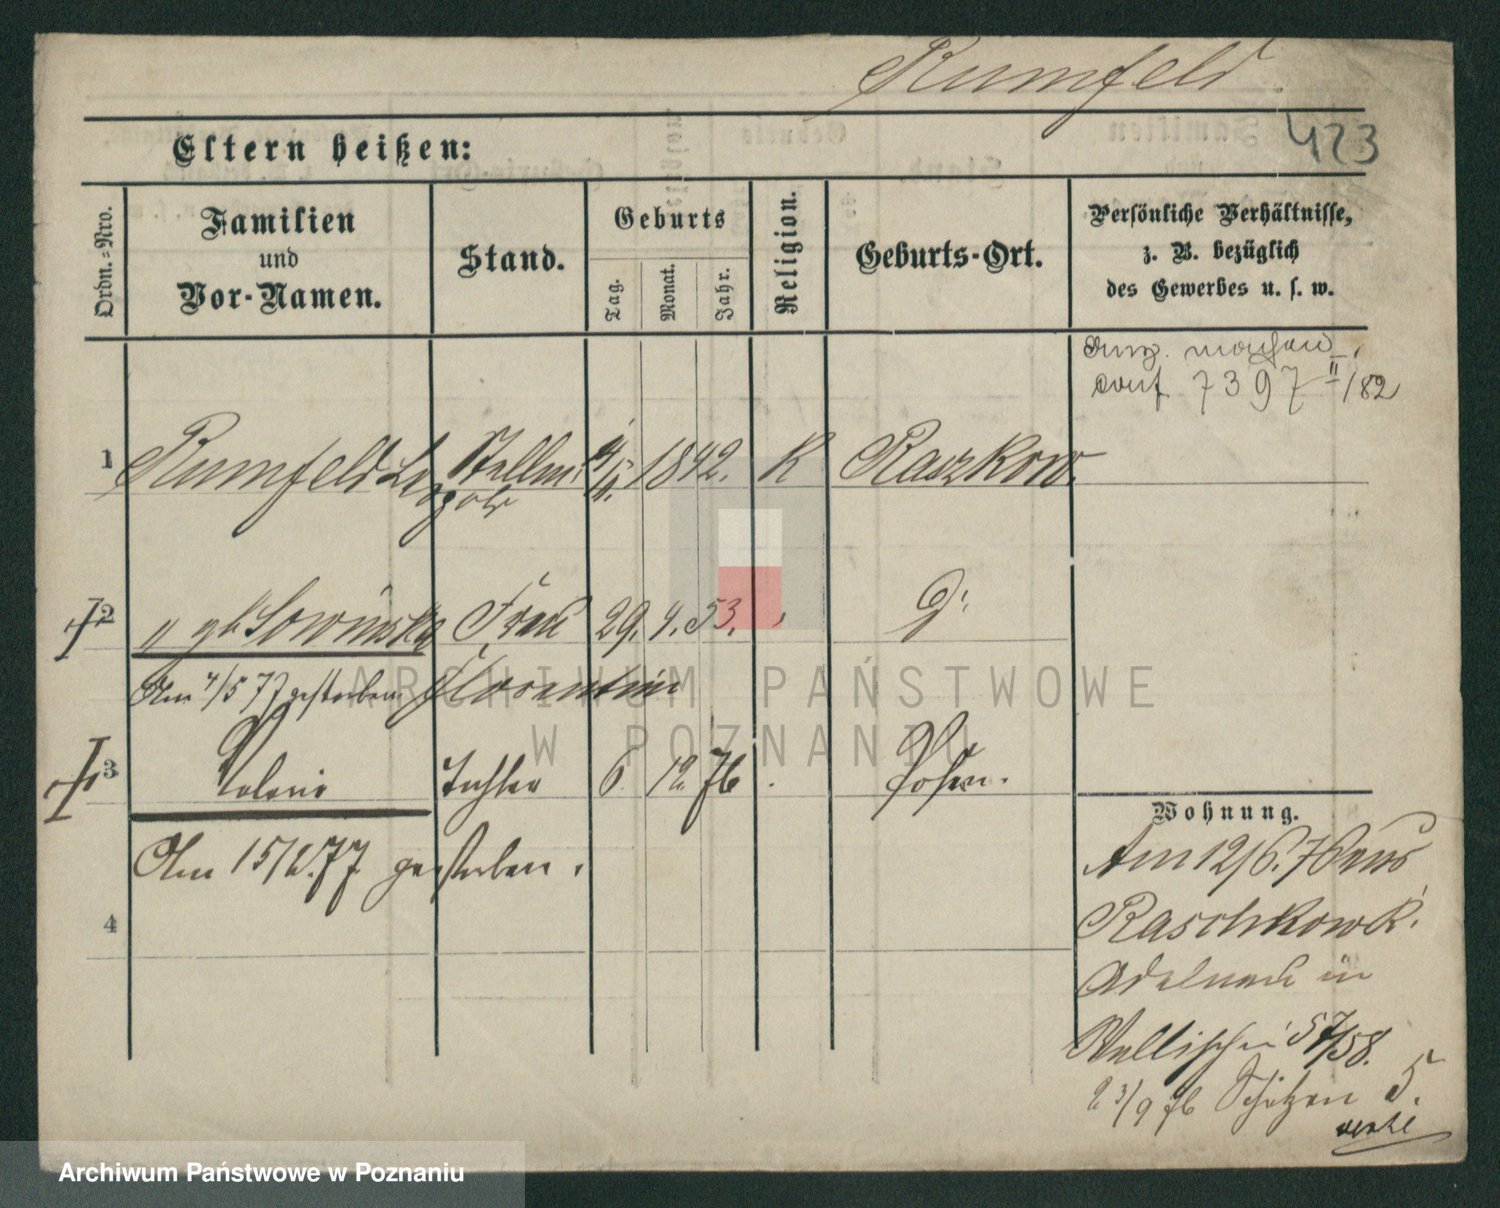 Rumfeld
423
Eltern heißen:
Ordn.-Nro.
Familien
und
Vor-Namen.
Stand.
Geburts
Tag.
Monat.
Jahr.
Religion.
Geburts-Ort.
Persönliche Verhältnisse,
z. B. bezüglich
des Gewerbes u. s. w.
7397 II/82
1 Rumfeld Stellm. 1842. K Raszkow.
2 " gb Sowinska Frau 29. 4. 53. "
Am 4/5 77 gestorben Florentine
3 Tochter 6. 12. 76 Posen.
Am 15/2. 77 gestorben.
4
Wohnung.
Am 12/6. 76 aus
Raschkow K.
Adelnau in
Wallischei 57/58.
23/9 76 Schützen 5.
ARCHIWUM PAŃSTWOWE
W POZNANIU
Archiwum Państwowe w Poznaniu